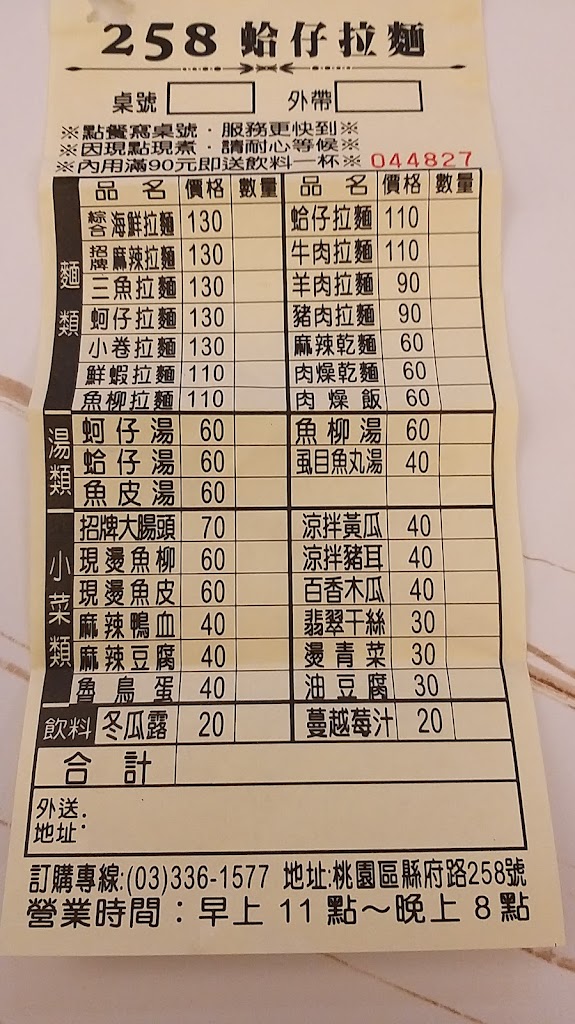 258 蛤仔拉麵
桌號 外帶
※點餐寫桌號．服務更快到※
※因現點現煮．請耐心等候※
※內用滿90元即送飲料一杯※ 044827
品名 價格 數量 品名 價格 數量
麵類
綜合海鮮拉麵 130 蛤仔拉麵 110
招牌麻辣拉麵 130 牛肉拉麵 110
三魚拉麵 130 羊肉拉麵 90
蚵仔拉麵 130 豬肉拉麵 90
小卷拉麵 130 麻辣乾麵 60
鮮蝦拉麵 110 肉燥乾麵 60
魚柳拉麵 110 肉燥飯 60
湯類
蚵仔湯 60 魚柳湯 60
蛤仔湯 60 虱目魚丸湯 40
魚皮湯 60
小菜類
招牌大腸頭 70 涼拌黃瓜 40
現燙魚柳 60 涼拌豬耳 40
現燙魚皮 60 百香木瓜 40
麻辣鴨血 40 翡翠干絲 30
麻辣豆腐 40 燙青菜 30
魯鳥蛋 40 油豆腐 30
飲料 冬瓜露 20 蔓越莓汁 20
合計
外送:
地址:
訂購專線:(03)336-1577 地址:桃園區縣府路258號
營業時間：早上11點～晚上8點